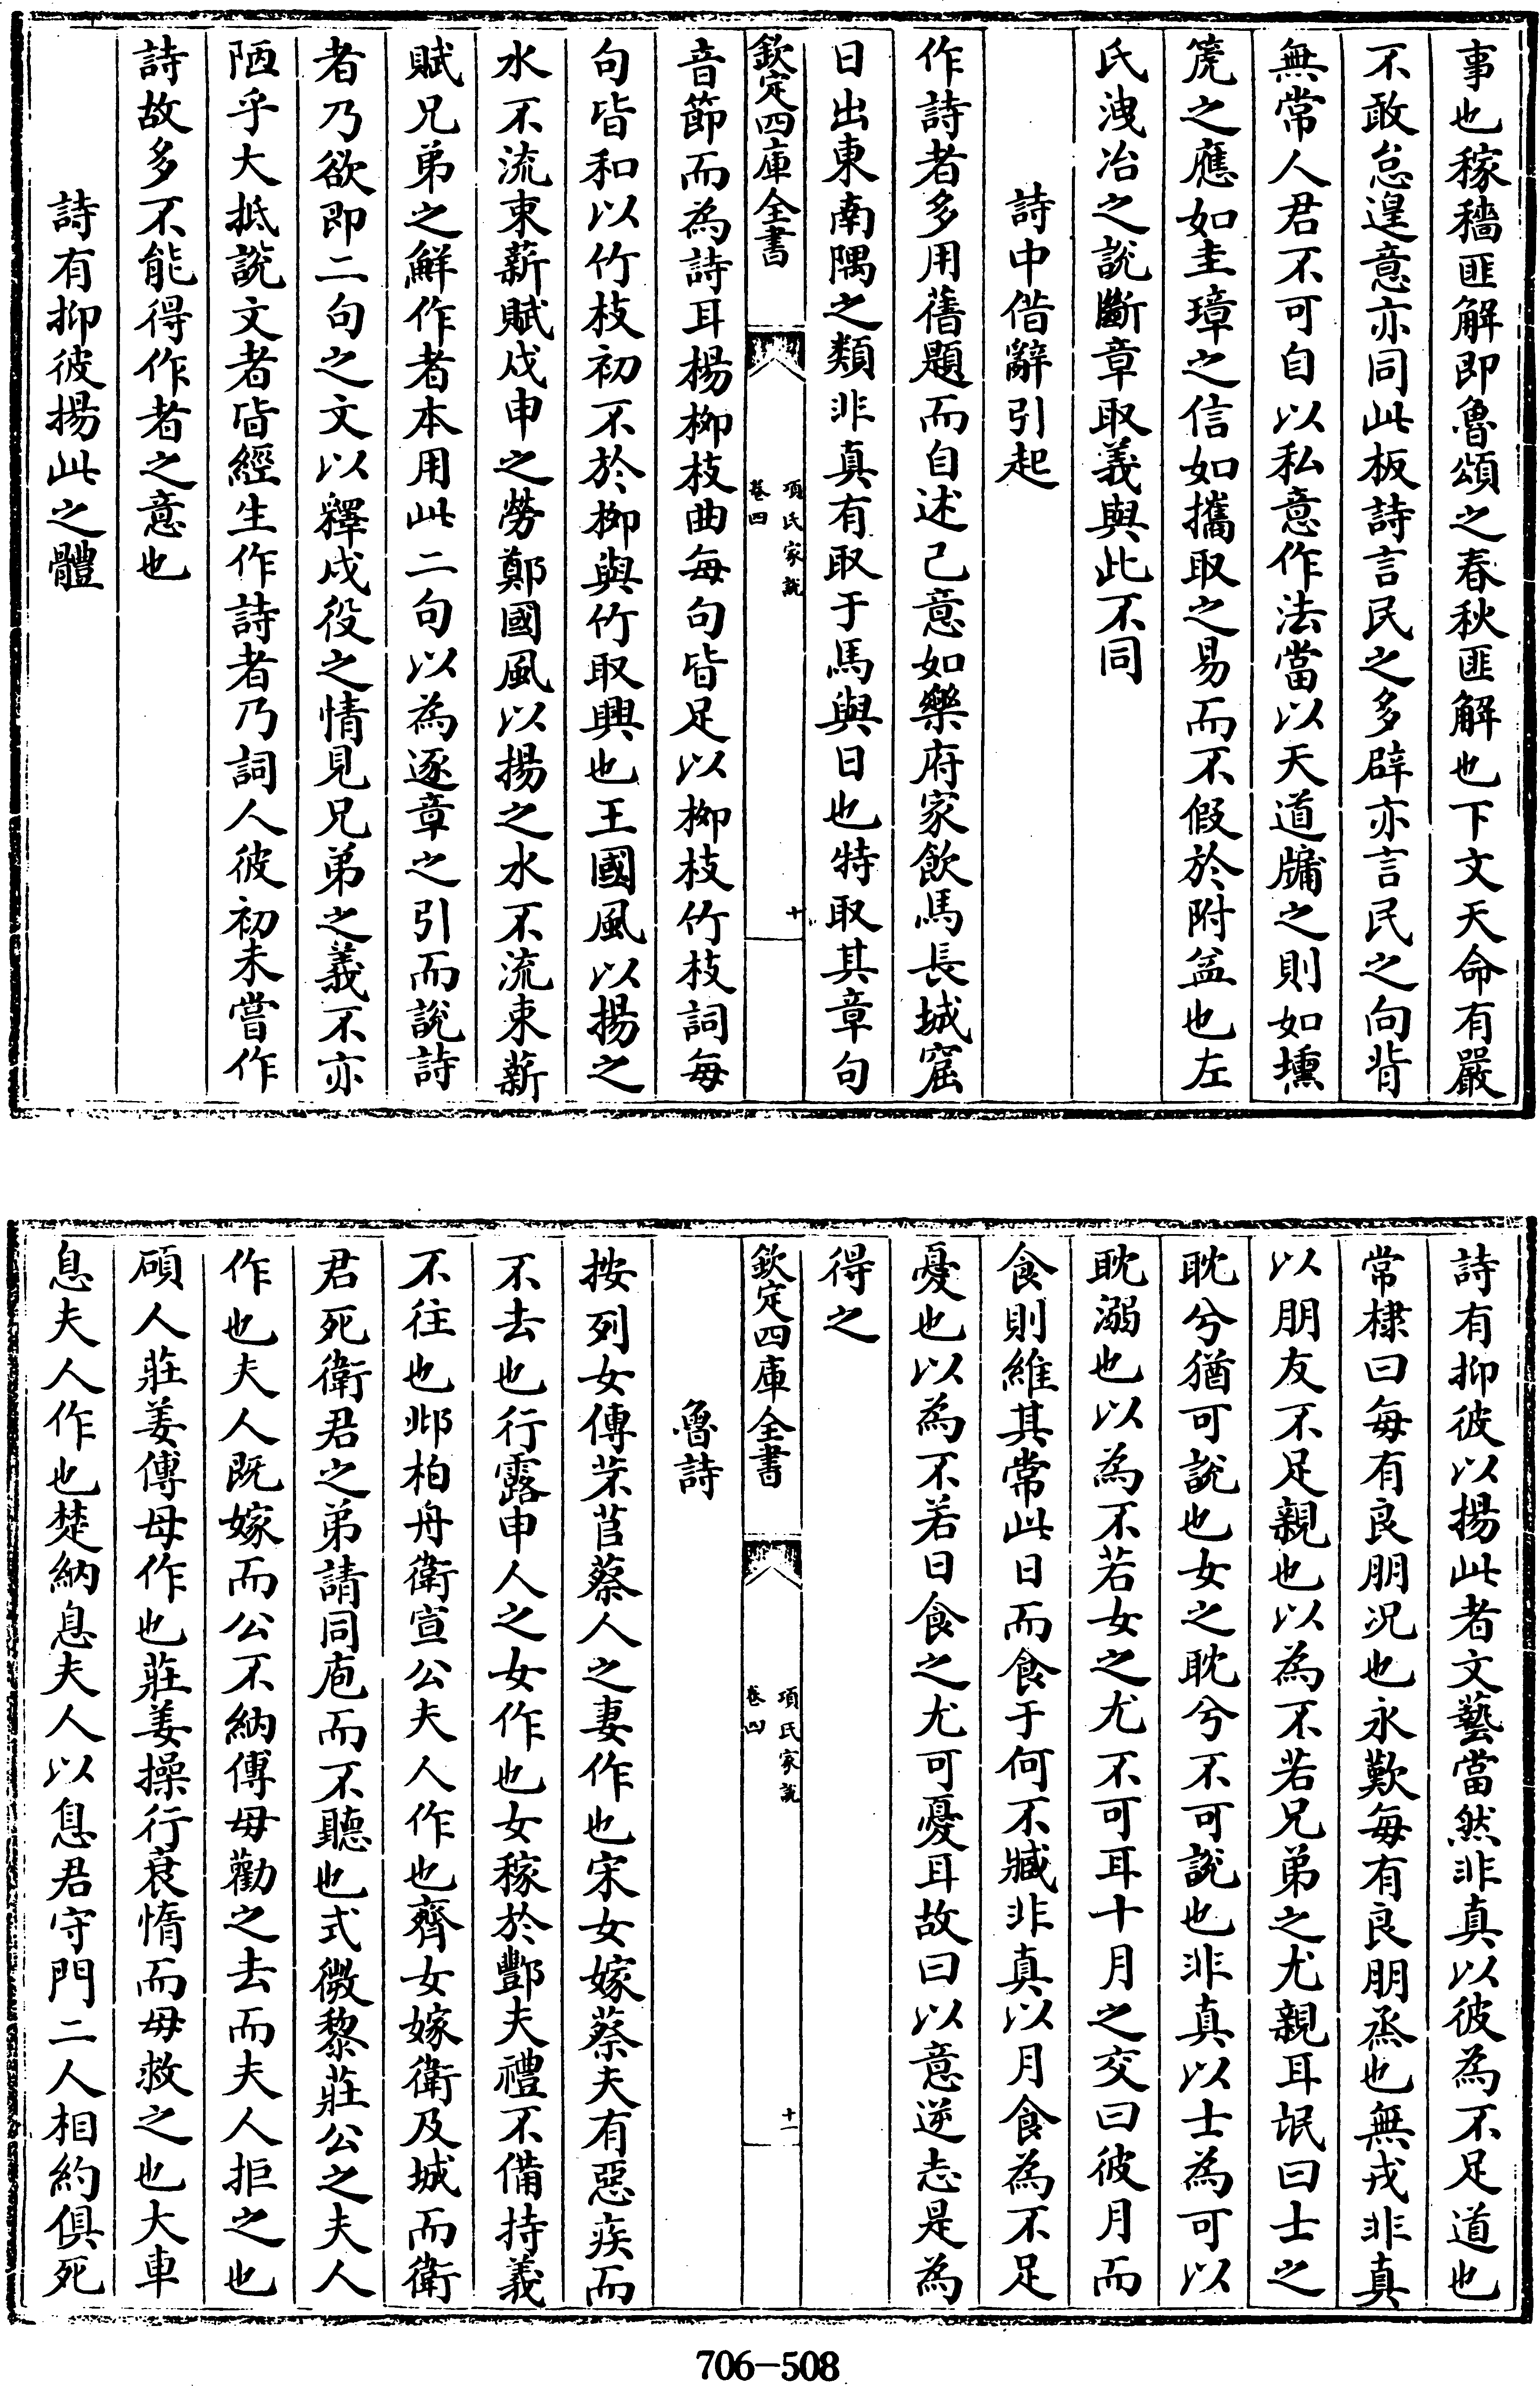 事也稼穡匪解即魯頌之春秋匪解也下文天命有嚴
不敢怠遑意亦同此板詩言民之多辟亦言民之向背
無常人君不可自以私意作法當以天道牖之則如壎
箎之應如圭璋之信如攜取之易而不假於附益也左
氏洩冶之説斷章取義與此不同
詩中借辭引起
作詩者多用舊題而自述己意如樂府家飲馬長城窟
日出東南隅之類非真有取于馬與日也特取其章句
欽定四庫全書
項氏家説
卷四
十
音節而為詩耳楊栁枝曲每句皆足以栁枝竹枝詞每
句皆和以竹枝初不於栁與竹取興也王國風以揚之
水不流束薪賦戍申之勞鄭國風以揚之水不流束薪
賦兄弟之鮮作者本用此二句以為逐章之引而説詩
者乃欲即二句之文以釋戍役之情見兄弟之義不亦
陋乎大抵説文者皆經生作詩者乃詞人彼初未嘗作
詩故多不能得作者之意也
詩有抑彼揚此之體
詩有抑彼以揚此者文藝當然非真以彼為不足道也
常棣曰每有良朋况也永歎每有良朋烝也無戎非真
以朋友不足親也以為不若兄弟之尤親耳氓曰士之
耽兮猶可說也女之耽兮不可說也非真以士為可以
耽溺也以為不若女之尤不可耳十月之交曰彼月而
食則維其常此日而食于何不臧非真以月食為不足
憂也以為不若日食之尤可憂耳故曰以意逆志是為
得之
欽定四庫全書
項氏家説
卷四
十一
魯詩
按列女傳芣苢蔡人之妻作也宋女嫁蔡夫有惡疾而
不去也行露申人之女作也女稼於酆夫禮不備持義
不往也邶柏舟衛宣公夫人作也齊女嫁衛及城而衛
君死衛君之弟請同庖而不聽也式微黎莊公之夫人
作也夫人既嫁而公不納傅母勸之去而夫人拒之也
碩人莊姜傅母作也莊姜操行衰惰而母救之也大車
息夫人作也楚納息夫人以息君守門二人相約俱死
706-508